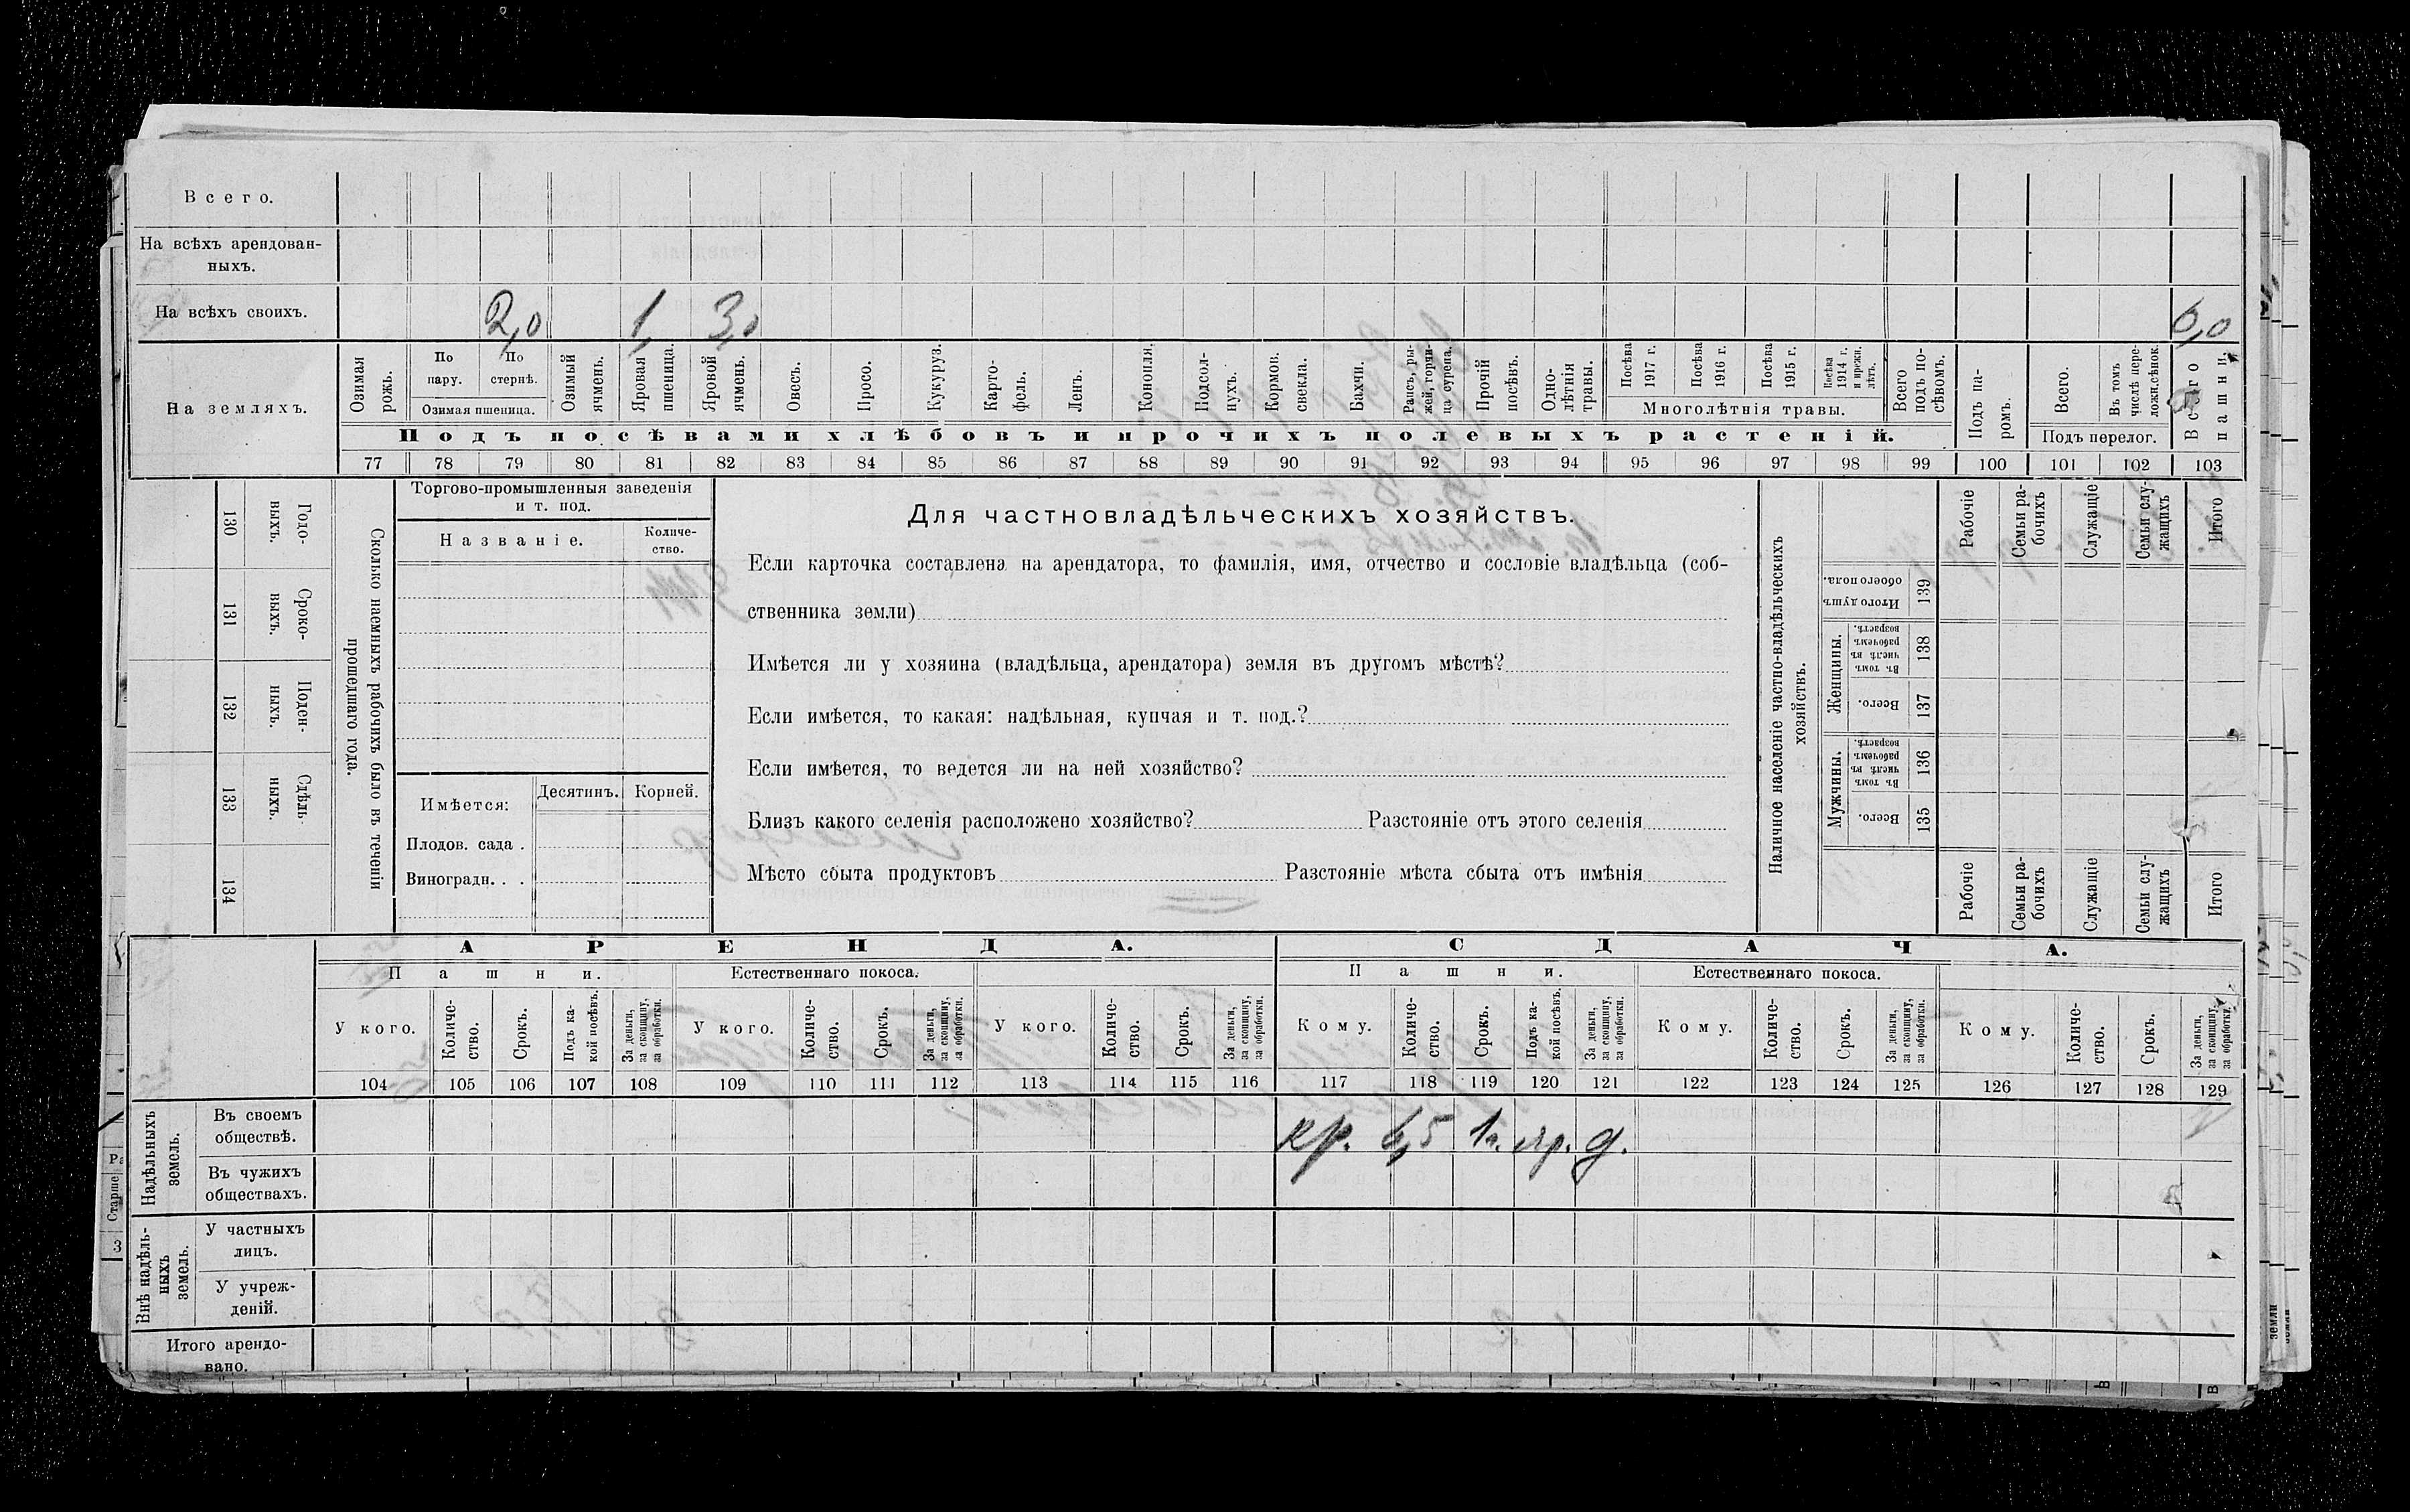 Всего.
На всѣхъ арендован-
ныхъ.
На всѣхъ своихъ. 2,0 1, 3,0 6,0
На земляхъ.
Озимая рожь.
По пару.
По стернѣ.
Озимая пшеница.
Озимый ячмень.
Яровая пшеница.
Яровой ячмень.
Овесъ.
Просо.
Кукуруз.
Карто-
фель.
Ленъ.
Конопля.
Подсол-
нухъ.
Кормов. свекла.
Бахчи.
Рапсъ, ры-
жей, горчи-
ца сурепа.
Прочій посѣвъ.
Одно-
лѣтнія травы.
Посѣва 1917 г.
Посѣва 1916 г.
Посѣва 1915 г.
Посѣва 1914 г. и прежн. лѣтъ.
Многолѣтнія травы.
Всего подъ по-
сѣвомъ.
Подъ па-
ромъ.
Всего.
Въ томъ числѣ пере-
ложн.сѣнок.
Подъ перелог.
Всего пашни.
Подъ посѣвами хлѣбовъ и прочихъ полевыхъ растеній.
77 78 79 80 81 82 83 84 85 86 87 88 89 90 91 92 93 94 95 96 97 98 99 100 101 102 103
130 Годо-
выхъ.
131 Сроко-
выхъ.
132 Поден-
ныхъ.
133 Сдѣль-
ныхъ.
134
Сколько наемныхъ рабочихъ было въ теченіи
прошедшаго года.
Торгово-промышленныя заведенія
и т. под.
Названіе.
Количе-
ство.
Имѣется:
Десятинъ. Корней.
Плодов. сада .
Виноградн. . .
Для частновладѣльческихъ хозяйствъ.
Если карточка составлена на арендатора, то фамилія, имя, отчество и сословіе владѣльца (соб-
ственника земли)
Имѣется ли у хозяина (владѣльца, арендатора) земля въ другомъ мѣстѣ?
Если имѣется, то какая: надѣльная, купчая и т. под.?
Если имѣется, то ведется ли на ней хозяйство?
Близъ какого селенія расположено хозяйство? Разстояніе отъ этого селенія
Мѣсто сбыта продуктовъ Разстояніе мѣста сбыта отъ имѣнія
Наличное населеніе частно-владѣльческихъ
хозяйствъ.
Рабочіе
Семьи ра-
бочихъ
Служащіе
Семьи слу-
жащихъ
Итого
Итого душъ обоего пола. 139
Женщины.
Въ томъ числѣ въ рабочемъ возрастѣ. 138
Всего. 137
Мужчины.
Въ томъ числѣ въ рабочемъ возрастѣ. 136
Всего. 135
Рабочіе
Семьи ра-
бочихъ
Служащіе
Семьи слу-
жащихъ
Итого
АРЕНДА. СДАЧА.
Пашни. Естественнаго покоса. Пашни. Естественнаго покоса.
У кого.
Количе-
ство.
Срокъ.
Подъ ка-
кой посѣвъ.
За деньги,
за скопщину,
за обработки.
У кого.
Количе-
ство.
Срокъ.
За деньги,
за скопщину,
за обработки.
У кого.
Количе-
ство.
Срокъ.
За деньги,
за скопщину,
за обработки.
Кому.
Количе-
ство.
Срокъ.
Подъ ка-
кой посѣвъ.
За деньги,
за скопщину,
за обработки.
Кому.
Количе-
ство.
Срокъ.
За деньги,
за скопщину,
за обработки.
Кому.
Количе-
ство.
Срокъ.
За деньги,
за скопщину,
за обработки.
104 105 106 107 108 109 110 111 112 113 114 115 116 117 118 119 120 121 122 123 124 125 126 127 128 129
Надѣльныхъ
земель.
Въ своемъ
обществѣ.
кр. 6,5 1г. яр. д.
Въ чужихъ
обществахъ.
Внѣ надѣль-
ныхъ
земель.
У частныхъ
лицъ.
У учреж-
деній.
Итого арендо-
вано.
Старше
земли